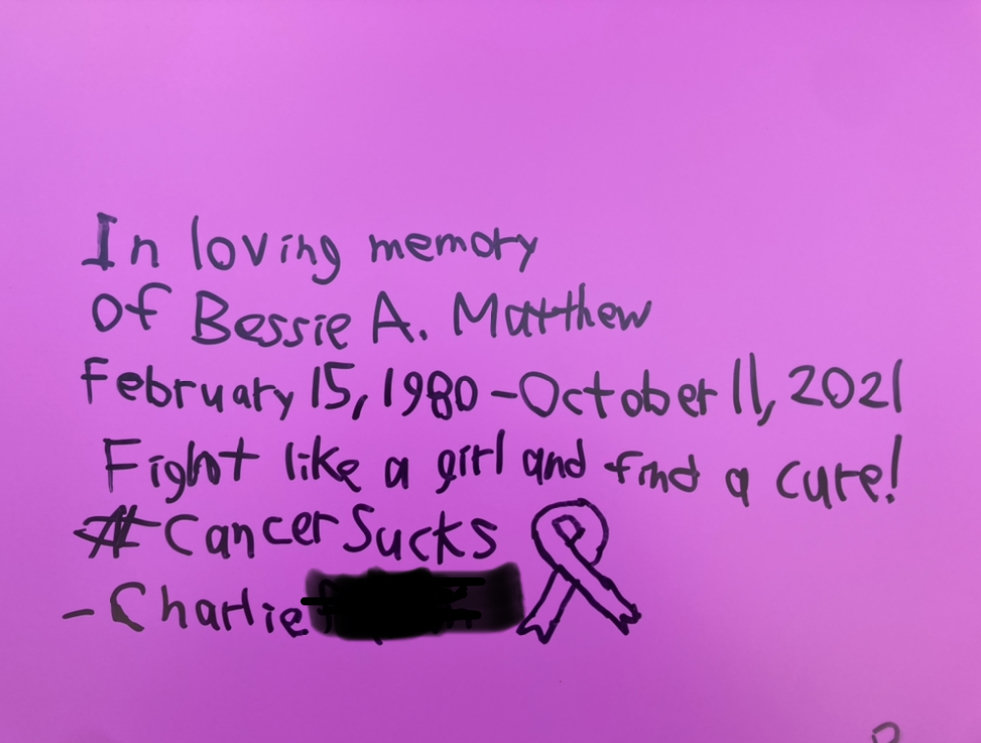 In loving memory
of Bessie A. Matthew
February 15, 1980 - October 11, 2021
Fight like a girl and find a cure!
#CancerSucks
- Charlie